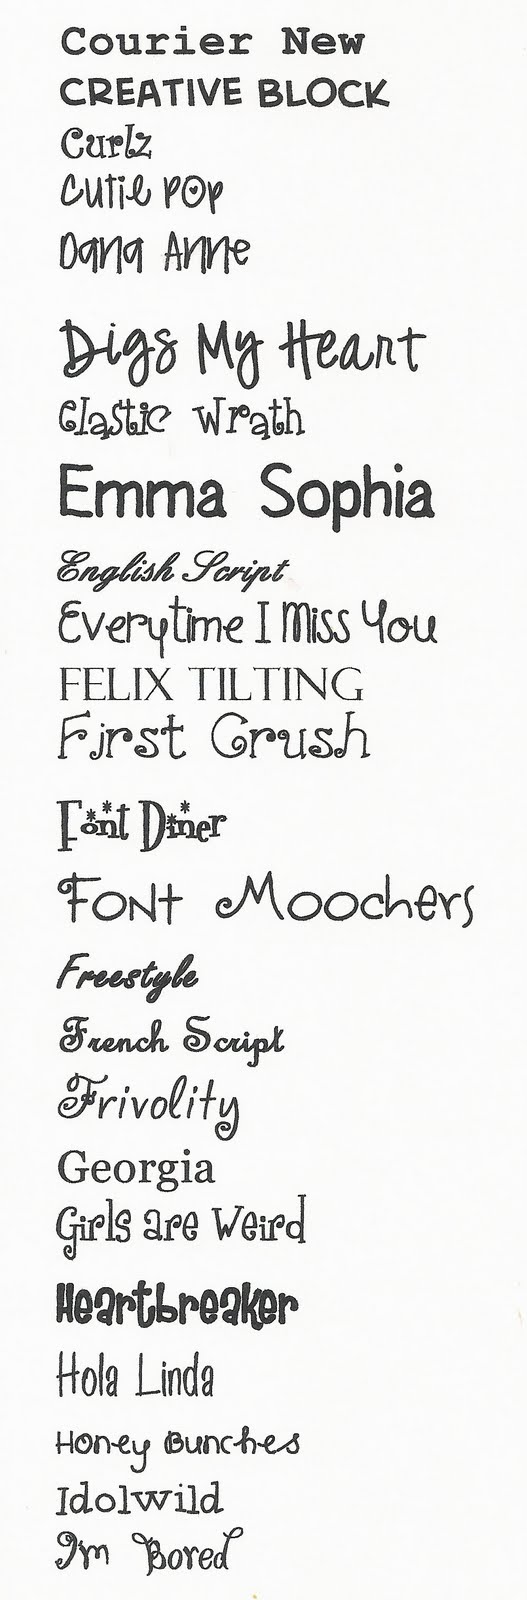 Courier New
CREATIVE BLOCK
Curlz
Cutie Pop
Dana Anne
Digs My Heart
Elastic Wrath
Emma Sophia
English Script
Everytime I Miss You
FELIX TILTING
First Crush
Font Diner
Font Moochers
Freestyle
French Script
Frivolity
Georgia
Girls are Weird
Heartbreaker
Hola Linda
Honey Bunches
Idolwild
I'm Bored